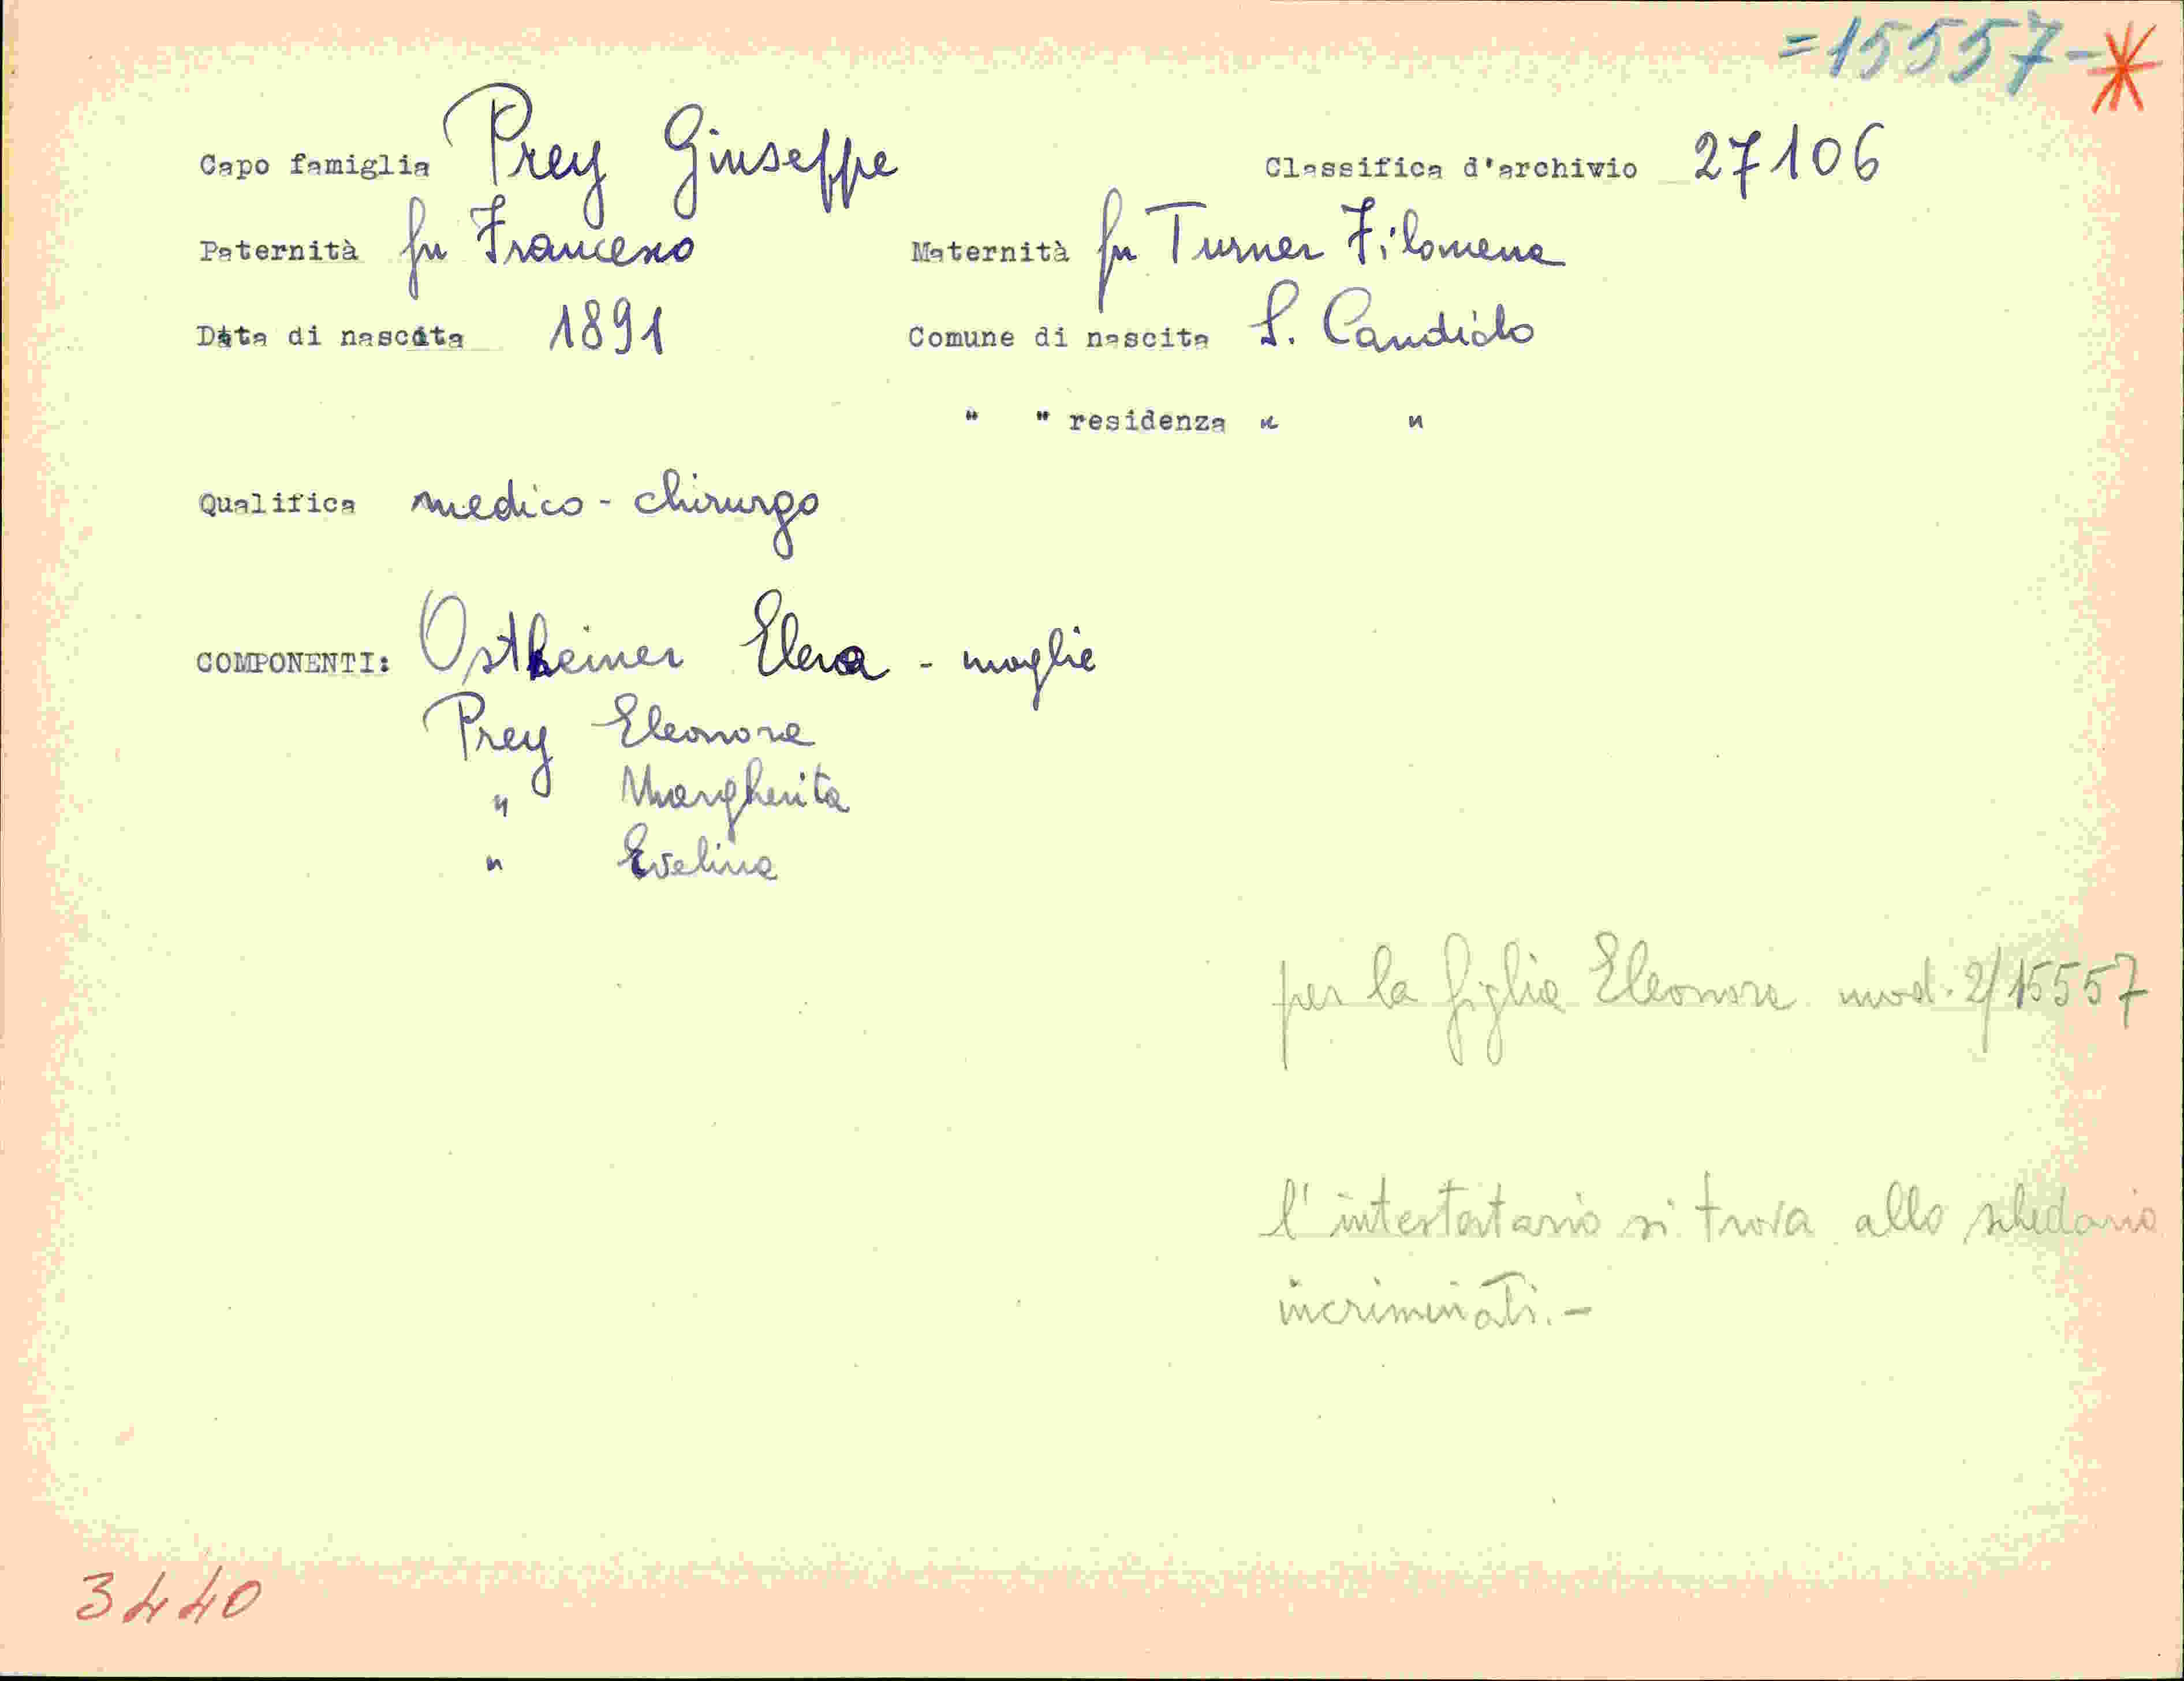 =15557-*
Capo famiglia Prey Giuseppe Classifica d'archivio 27106
Paternità fu Francesco Maternità fu Turner Filomena
Data di nascita 1891 Comune di nascita S. Candido
" " residenza " "
Qualifica medico-chirurgo
COMPONENTI: Ostheimer Elena - moglie
Prey Eleonora
" Margherita
" Evelina
per la figlia Eleonora mod. 2/15557
l'intestatario si trova allo schedario
incriminati.-
3440